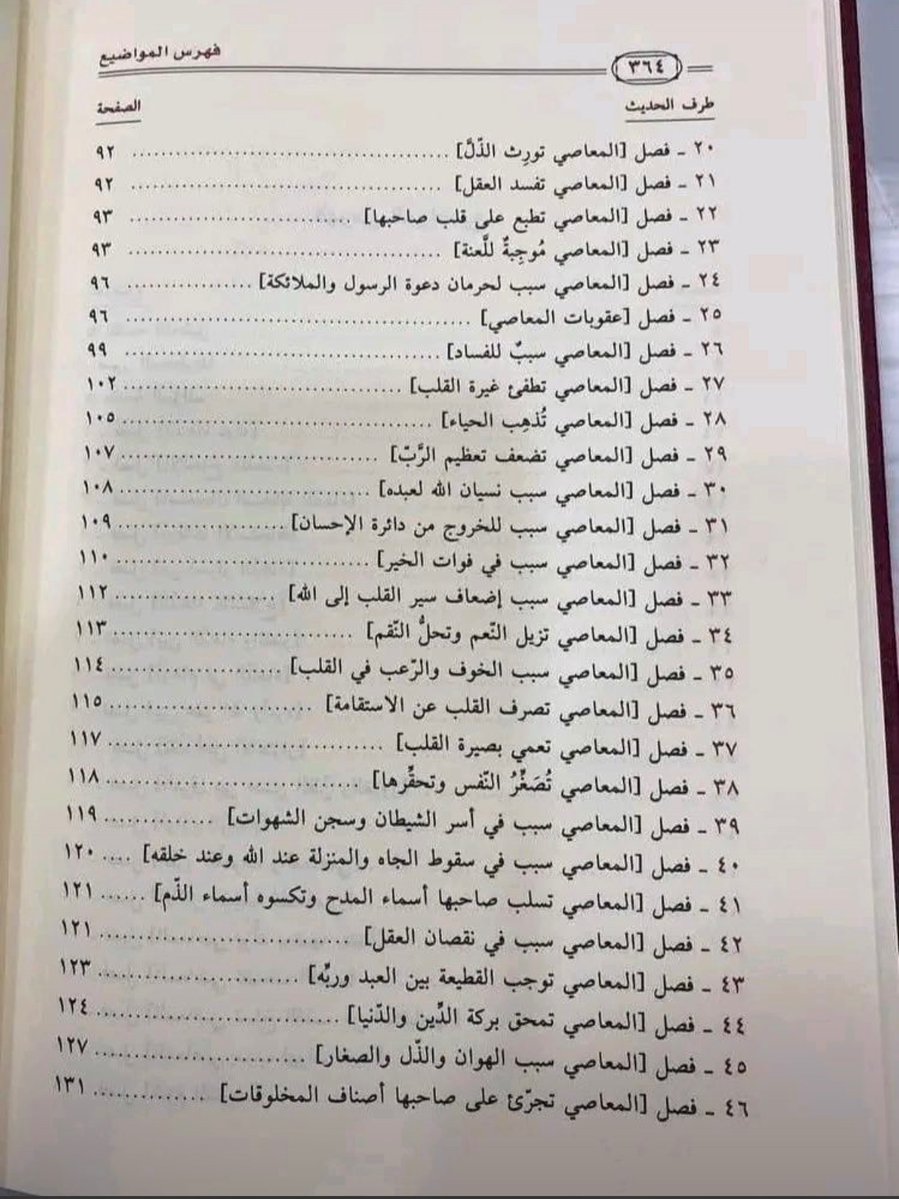 فهرس المواضيع
٣٦٤
طرف الحديث الصفحة
٢٠ ـ فصل [المعاصي تورِث الذّلَّ] ........................................ ٩٢
٢١ ـ فصل [المعاصي تفسد العقل] ........................................ ٩٢
٢٢ ـ فصل [المعاصي تطبع على قلب صاحبها] ............................ ٩٣
٢٣ ـ فصل [المعاصي مُوجِبةٌ للَّعنة] ........................................ ٩٣
٢٤ ـ فصل [المعاصي سبب لحرمان دعوة الرسول والملائكة] ................. ٩٦
٢٥ ـ فصل [عقوبات المعاصي] ............................................ ٩٦
٢٦ ـ فصل [المعاصي سببٌ للفساد] ........................................ ٩٩
٢٧ ـ فصل [المعاصي تطفئ غيرة القلب] .................................... ١٠٢
٢٨ ـ فصل [المعاصي تُذهِب الحياء] ........................................ ١٠٥
٢٩ ـ فصل [المعاصي تضعف تعظيم الرَّبّ] .................................. ١٠٧
٣٠ ـ فصل [المعاصي سبب نسيان الله لعبده] ................................ ١٠٨
٣١ ـ فصل [المعاصي سبب للخروج من دائرة الإحسان] ..................... ١٠٩
٣٢ ـ فصل [المعاصي سبب في فوات الخير] ................................ ١١٠
٣٣ ـ فصل [المعاصي سبب إضعاف سير القلب إلى الله] .................... ١١٢
٣٤ ـ فصل [المعاصي تزيل النّعم وتحلُّ النّقم] .............................. ١١٣
٣٥ ـ فصل [المعاصي سبب الخوف والرّعب في القلب] ..................... ١١٤
٣٦ ـ فصل [المعاصي تصرف القلب عن الاستقامة] ......................... ١١٥
٣٧ ـ فصل [المعاصي تعمي بصيرة القلب] ................................. ١١٧
٣٨ ـ فصل [المعاصي تُصَغِّرُ النّفس وتحقِّرها] .............................. ١١٨
٣٩ ـ فصل [المعاصي سبب في أسر الشيطان وسجن الشهوات] .............. ١١٩
٤٠ ـ فصل [المعاصي سبب في سقوط الجاه والمنزلة عند الله وعند خلقه] .... ١٢٠
٤١ ـ فصل [المعاصي تسلب صاحبها أسماء المدح وتكسوه أسماء الذّم] ...... ١٢١
٤٢ ـ فصل [المعاصي سبب في نقصان العقل] .............................. ١٢١
٤٣ ـ فصل [المعاصي توجب القطيعة بين العبد وربِّه] ....................... ١٢٣
٤٤ ـ فصل [المعاصي تمحق بركة الدِّين والدّنيا] ............................ ١٢٤
٤٥ ـ فصل [المعاصي سبب الهوان والذّل والصغار] ......................... ١٢٧
٤٦ ـ فصل [المعاصي تجرّئ على صاحبها أصناف المخلوقات] .............. ١٣١